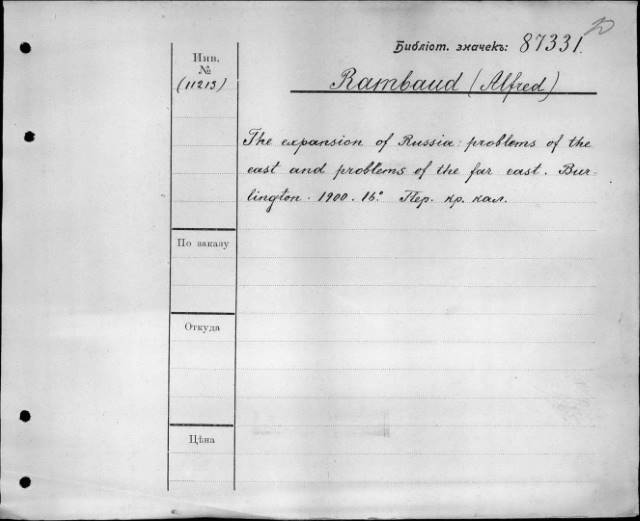 Библіот. значекъ: 87331.
Инв.
№
(11213)
Rambaud (Alfred)
The expansion of Russia: problems of the
east and problems of the far east. Bur-
lington. 1900. 16°. Пер. кр. кал.
По заказу
Откуда
Цѣна